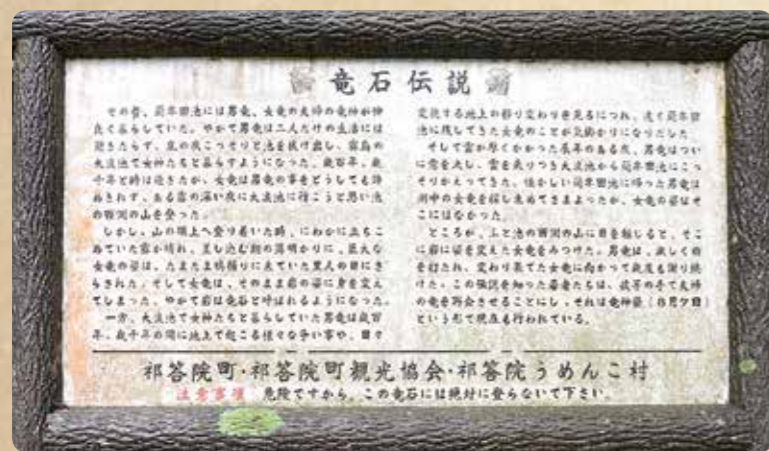 竜石伝説
その昔、藺牟田池には男竜、女竜の夫婦の竜神が仲
良く暮らしていた。やがて男竜は二人だけの生活には
飽きたらず、嵐の夜こっそりと池を抜け出し、霧島の
大浪池で女神たちと暮らすようになった。幾百年、幾
千年と時は過ぎたが、女竜は男竜の事をどうしても諦
めきれず、ある霧の深い夜に大浪池に行こうと思い池
の西渕の山を登った。
しかし、山の頂上へ登り着いた時、にわかに立ちこ
めていた霧が晴れ、差し込む朝の薄明かりに、巨大な
女竜の姿は、たまたま鴨捕りに来ていた里人の目にさ
らされた。そして女竜は、そのまま岩の姿に身を変え
てしまった。やがて岩は竜石と呼ばれるようになった。
一方、大浪池で女神たちと暮らしていた男竜は幾百
年、幾千年の間に地上で起こる様々な争い事や、日々
変貌する地上の移り変わりを見るにつれ、遠く藺牟田
池に残してきた女竜のことが気掛かりになりだした。
そして雲が厚くかかった辰年のある夜、男竜はつい
に意を決し、雲を突りつき大浪池から藺牟田池にこっ
そりかえってきた。懐かしい藺牟田池に帰った男竜は
湖中の女竜を探し求めてさまよったが、女竜の姿はそ
こにはなかった。
ところが、ふと池の西渕の山に目を転じると、そこ
に岩に姿を変えた女竜をみつけた。男竜は、激しく胸
を打たれ、変わり果てた女竜に向かって幾度も謝り続
けた。この伝説を知った若者たちは、彼等の手で夫婦
の竜を再会させることにし、それは竜神祭(8月夕日)
という形で現在も行われている。
祁答院町・祁答院町観光協会・祁答院うめんこ村
注意事項 危険ですから、この竜石には絶対に登らないで下さい。